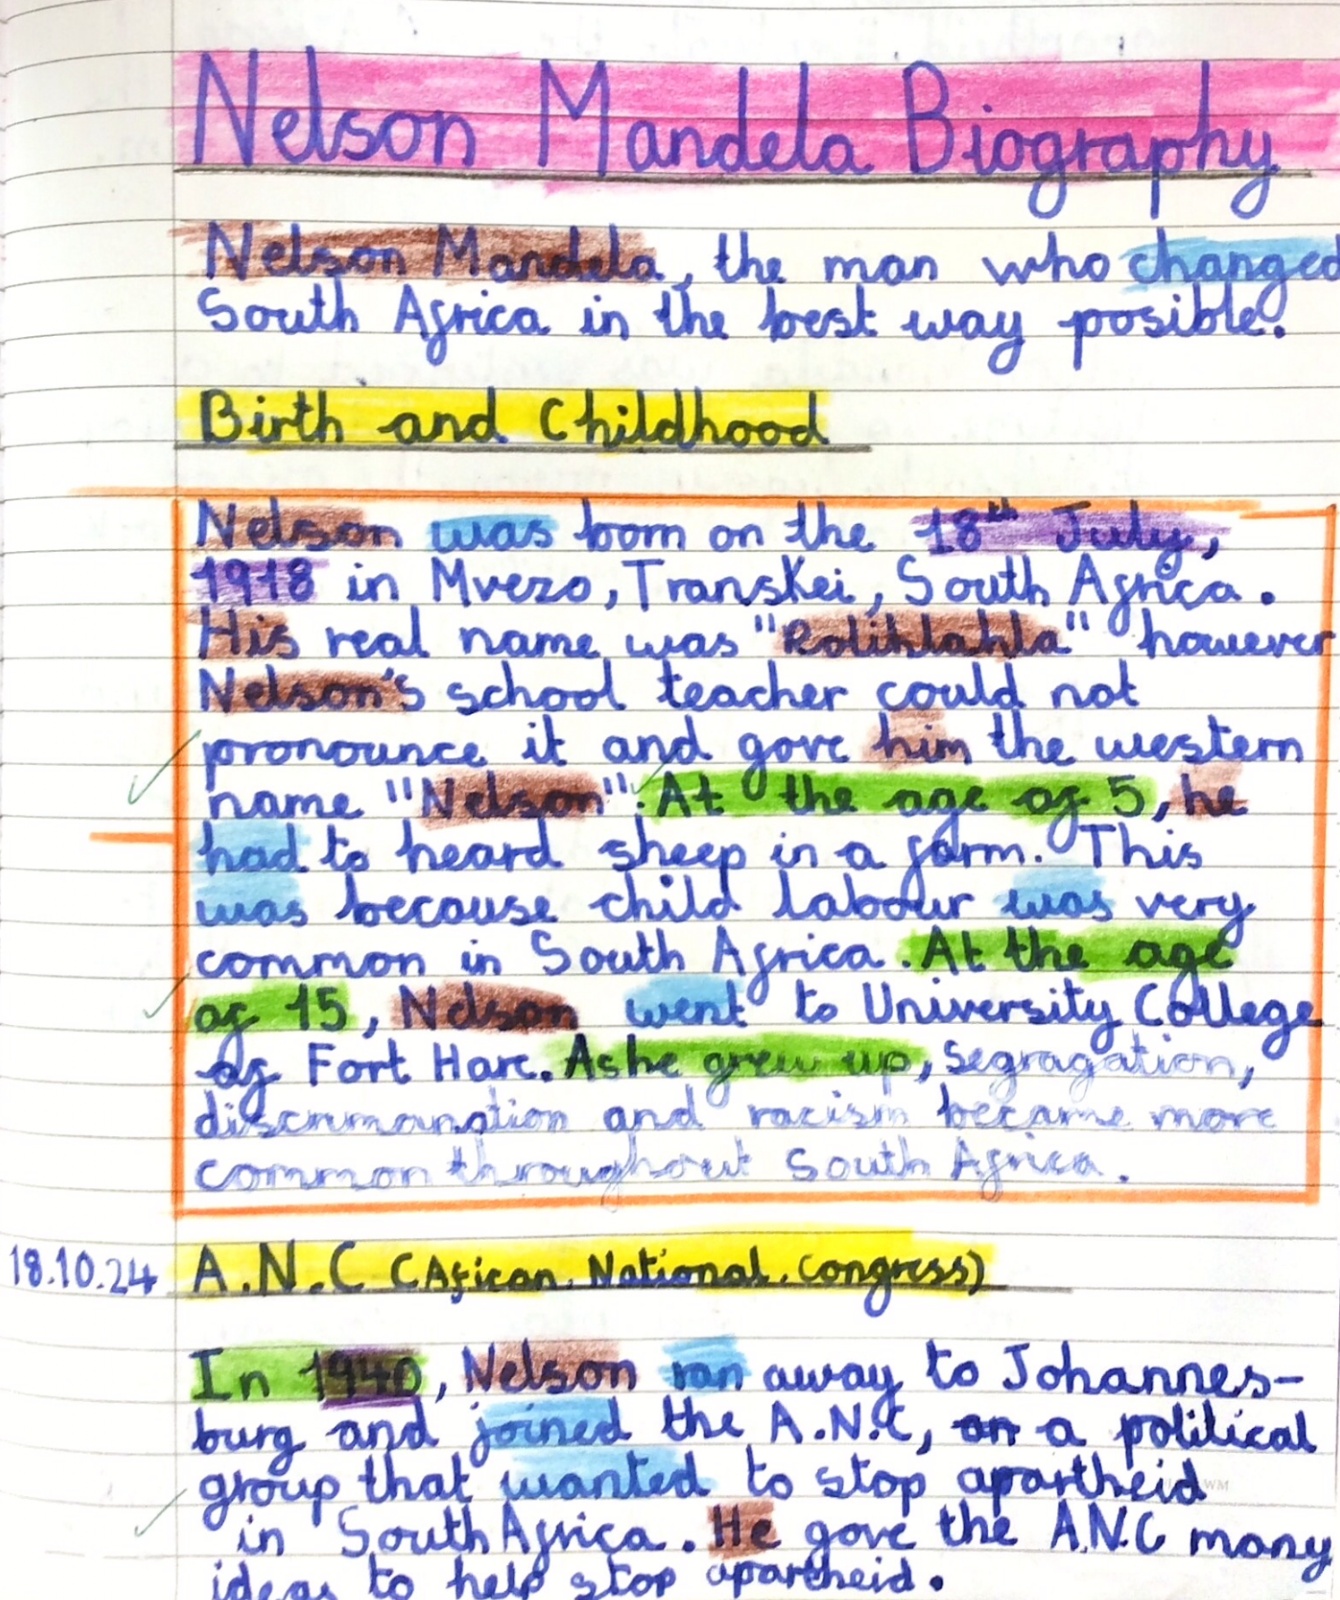 Nelson Mandela Biography
Nelson Mandela, the man who changed
South Africa in the best way posible.
Birth and Childhood
Nelson was born on the 18th July,
1918 in Mvezo, Transkei, South Africa.
His real name was "Rolihlahla" however
Nelson's school teacher could not
pronounce it and gave him the western
name "Nelson". At the age of 5, he
had to heard sheep in a farm. This
was because child labour was very
common in South Africa. At the age
of 15, Nelson went to University College
of Fort Hare. As he grew up, segragation,
discrimanation and racism became more
common throughout South Africa.
18.10.24 A.N.C (Afican National Congress)
In 1940, Nelson ran away to Johannes-
burg and joined the A.N.C, an a political
group that wanted to stop apartheid
in South Africa. He gave the A.N.C many
ideas to help stop apartheid.